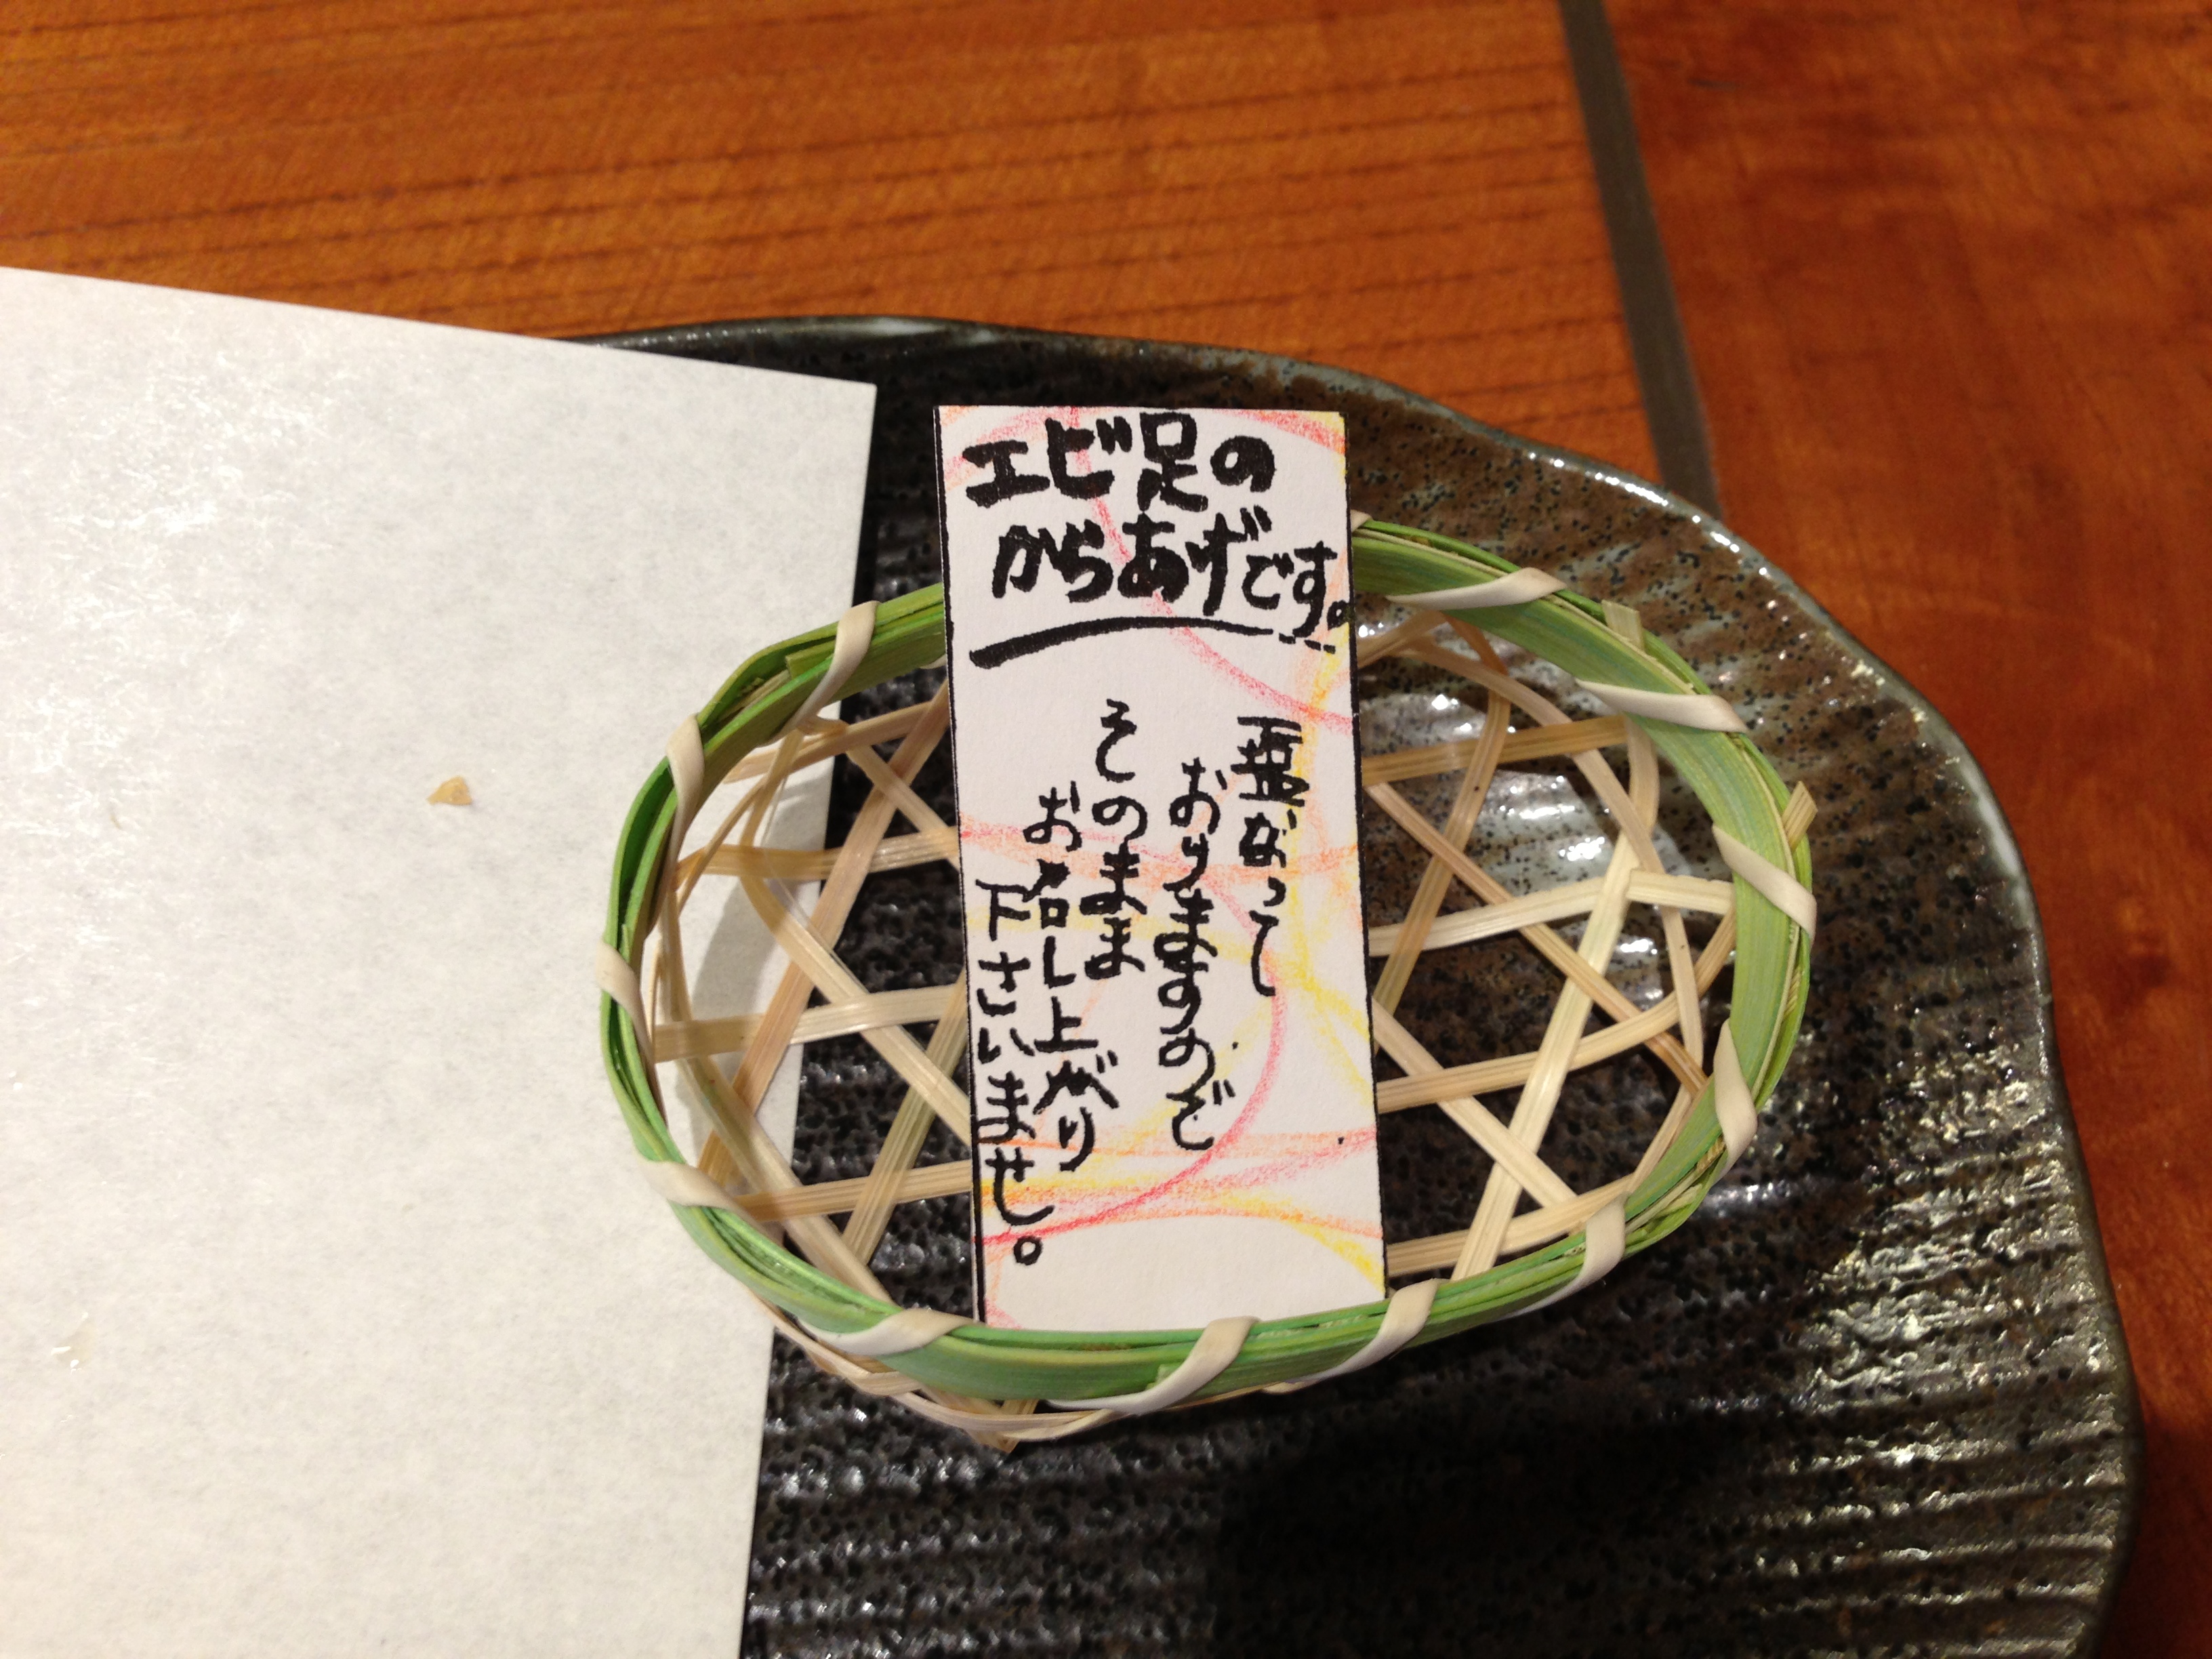 エビ足の
からあげです。
塩ふって
おりますので
そのまま
お召し上がり
下さいませ。